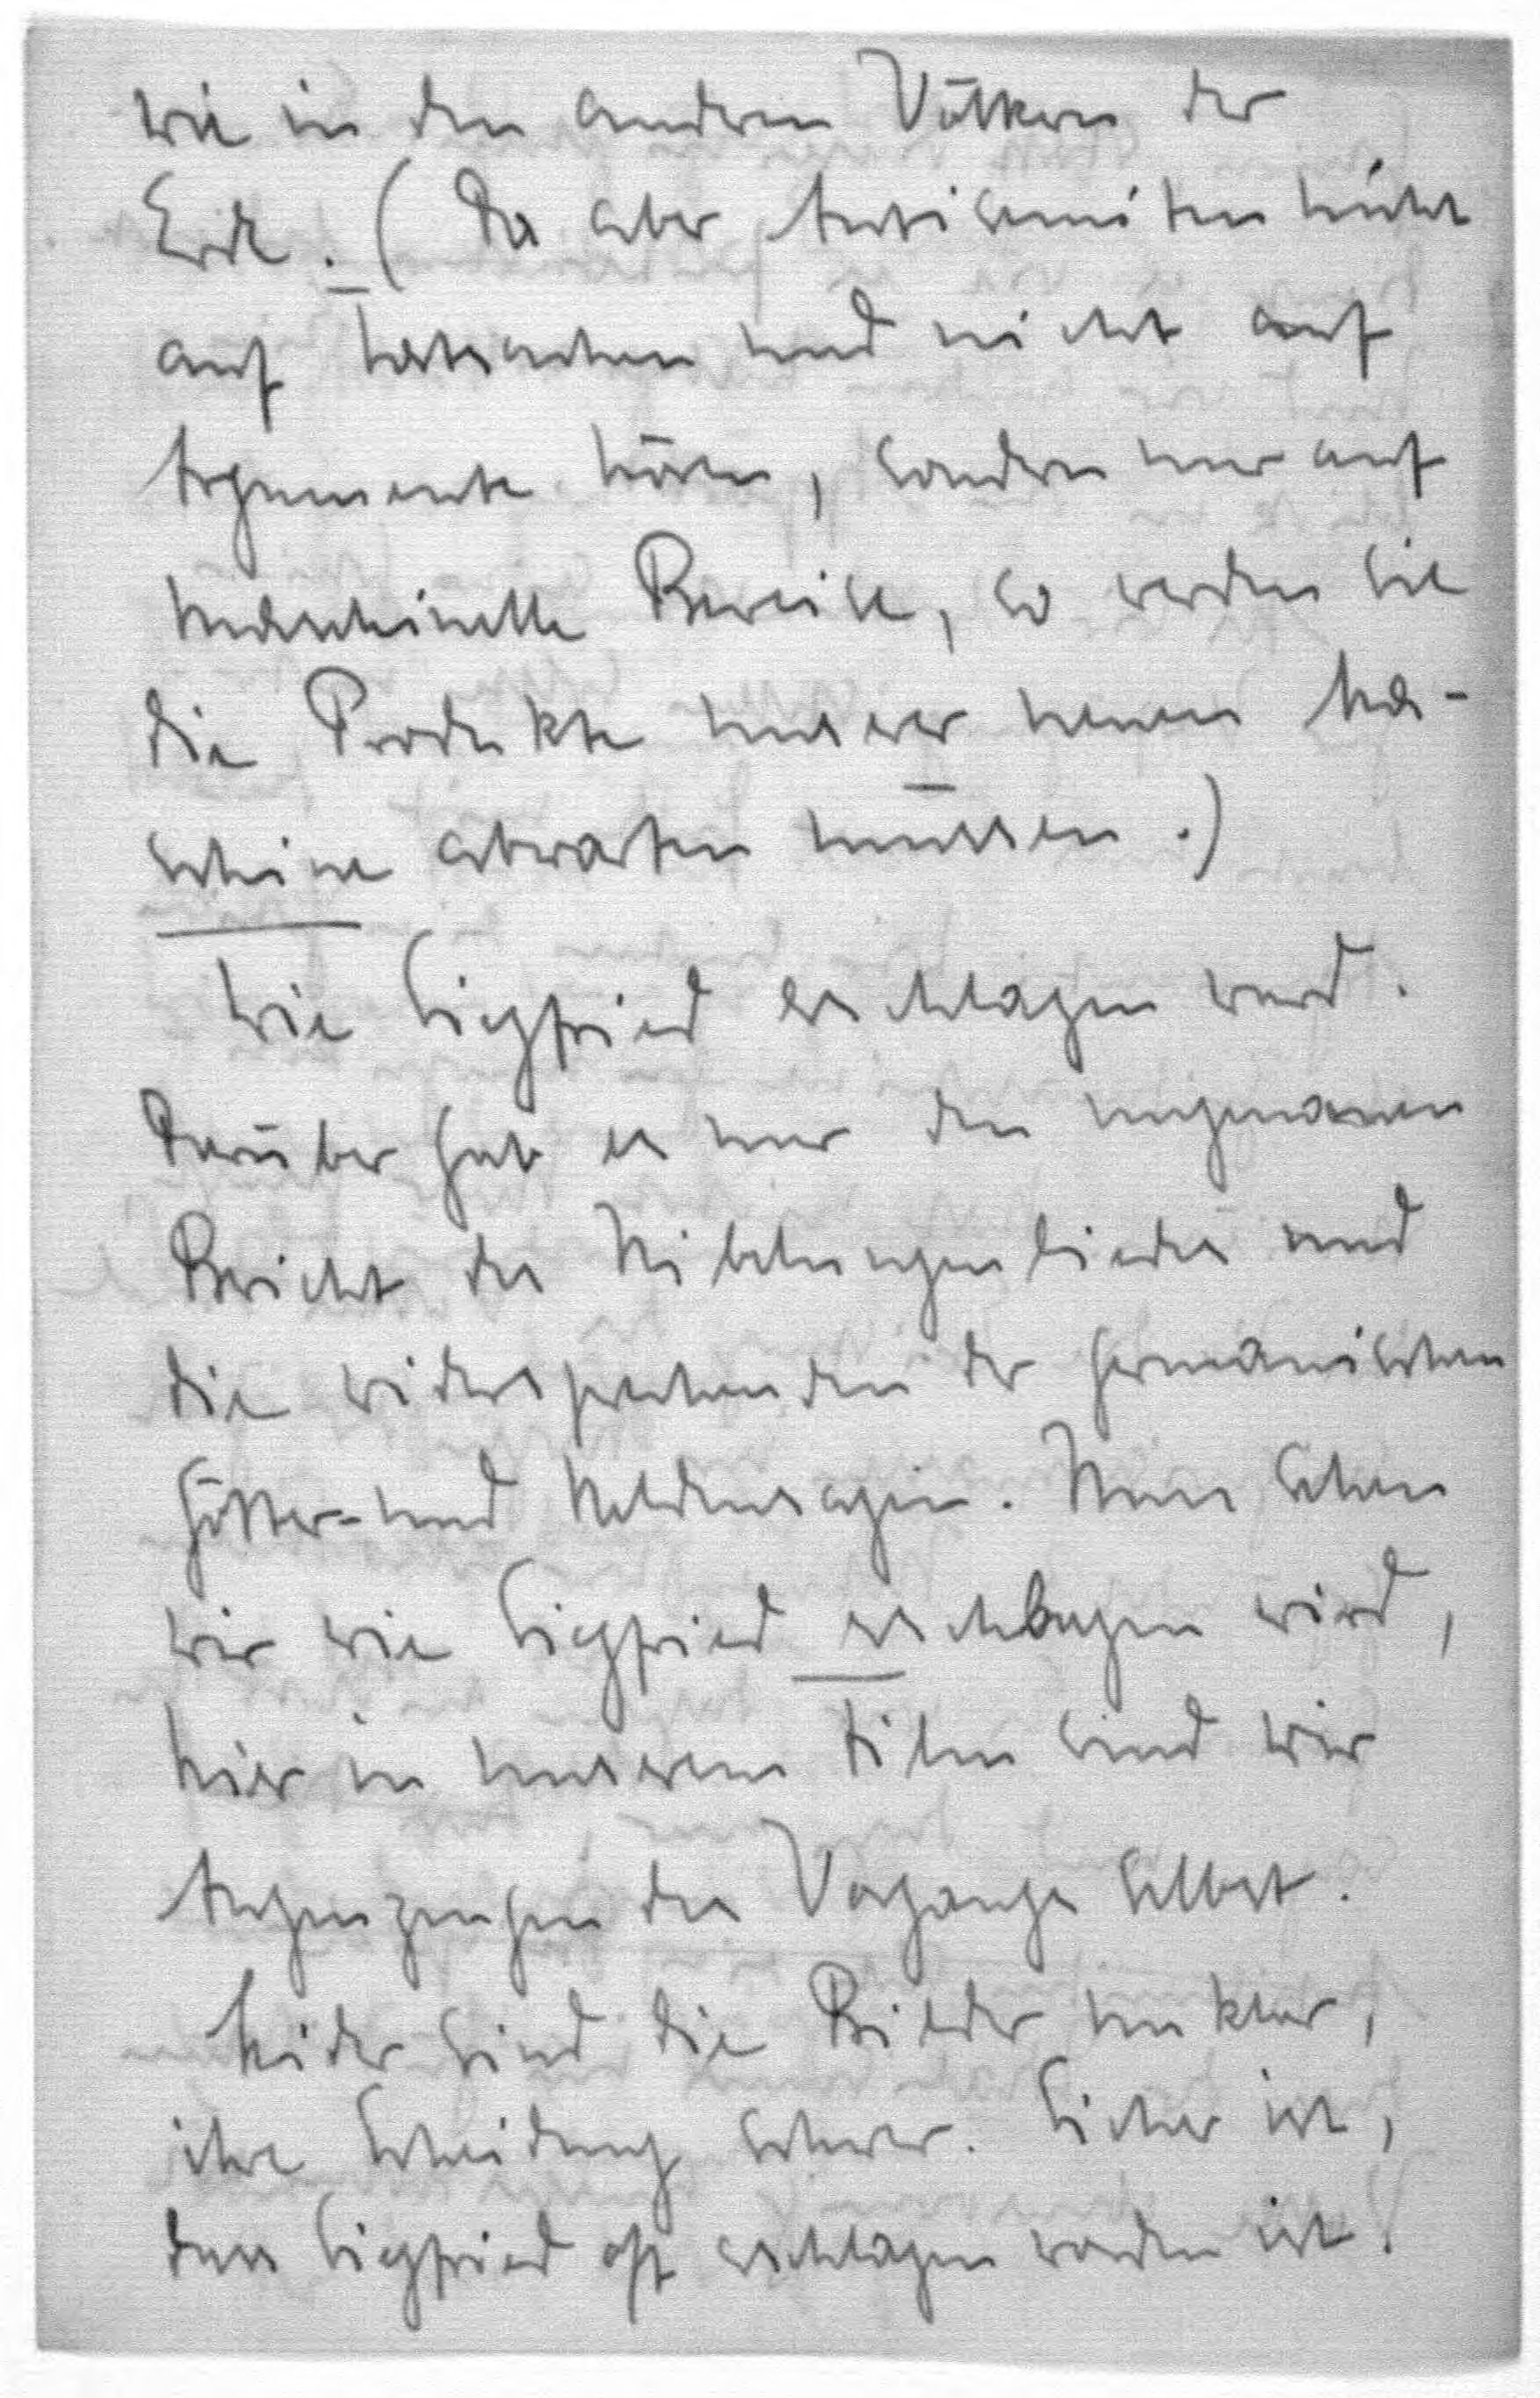 wie in den anderen Völkern der
Erde. (Da aber Antisemiten nicht
auf Tatsachen und nicht auf
Argumente hören, sondern nur auf
maschinelle Beweise, so werden sie
die Produkte unserer neuen Ma-
schine abwarten müssen.)
Wie Siegfried erschlagen ward.
Darüber gab es nur den ungenauen
Bericht des Nibelungenliedes und
die widersprechenden der germanischen
Götter- und Heldensagen. Nun sehen
wir wie Siegfried erschlagen wird,
hier in unserem Film sind wir
Augenzeugen des Vorgangs selbst.
Leider sind die Bilder unklar,
ihre Scheidung schwer. Sicher ist,
dass Siegfried oft erschlagen worden ist.